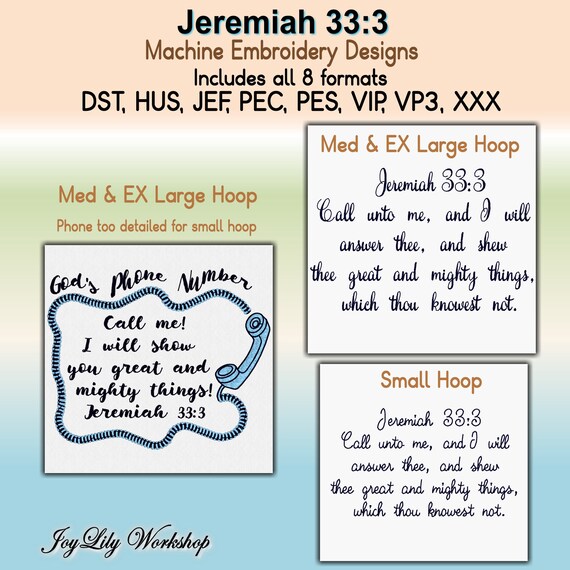 Jeremiah 33:3
Machine Embroidery Designs
Includes all 8 formats
DST, HUS, JEF, PEC, PES, VIP, VP3, XXX
Med & EX Large Hoop
Phone too detailed for small hoop
God's Phone Number
Call me!
I will show
you great and
mighty things!
Jeremiah 33:3
Med & EX Large Hoop
Jeremiah 33:3
Call unto me, and I will
answer thee, and shew
thee great and mighty things,
which thou knowest not.
Small Hoop
Jeremiah 33:3
Call unto me, and I will
answer thee, and shew
thee great and mighty things,
which thou knowest not.
JoyLily Workshop